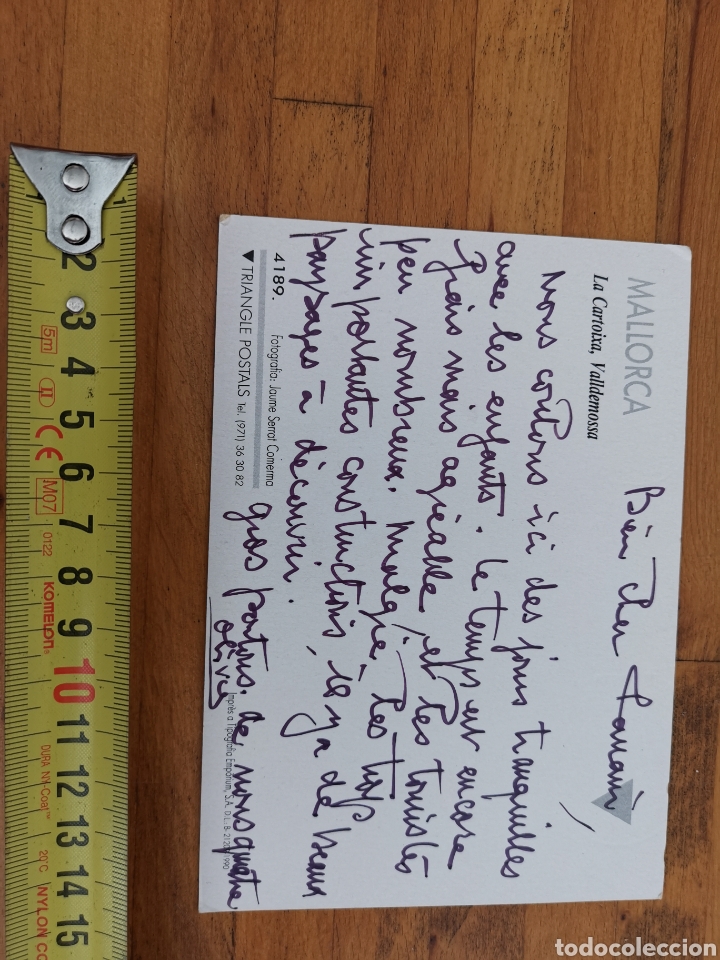 MALLORCA
La Cartoixa, Valldemossa
Bien cher
Nous coulons ici des jours tranquilles
avec les enfants. Le temps est encore
frais mais agréable, et les touristes
peu nombreux. Malgré les trop
importantes constructions, il y a de beaux
paysages à découvrir.
gros de nous quatre
4189. Fotografia: Jaume Serrat Comerma
▼TRIANGLE POSTALS Tel. (971) 36 30 82
Imprès a Tipografia Emporium, S.A. D.L.: B-
1
1
2
3
4
5
6
7
8
9
10
11
12
13
14
15
5m
II
CE
M07
0122
KOMELON
DURA NY-Coat™
20°C
NYLON CO
todocoleccion
todocoleccion.net